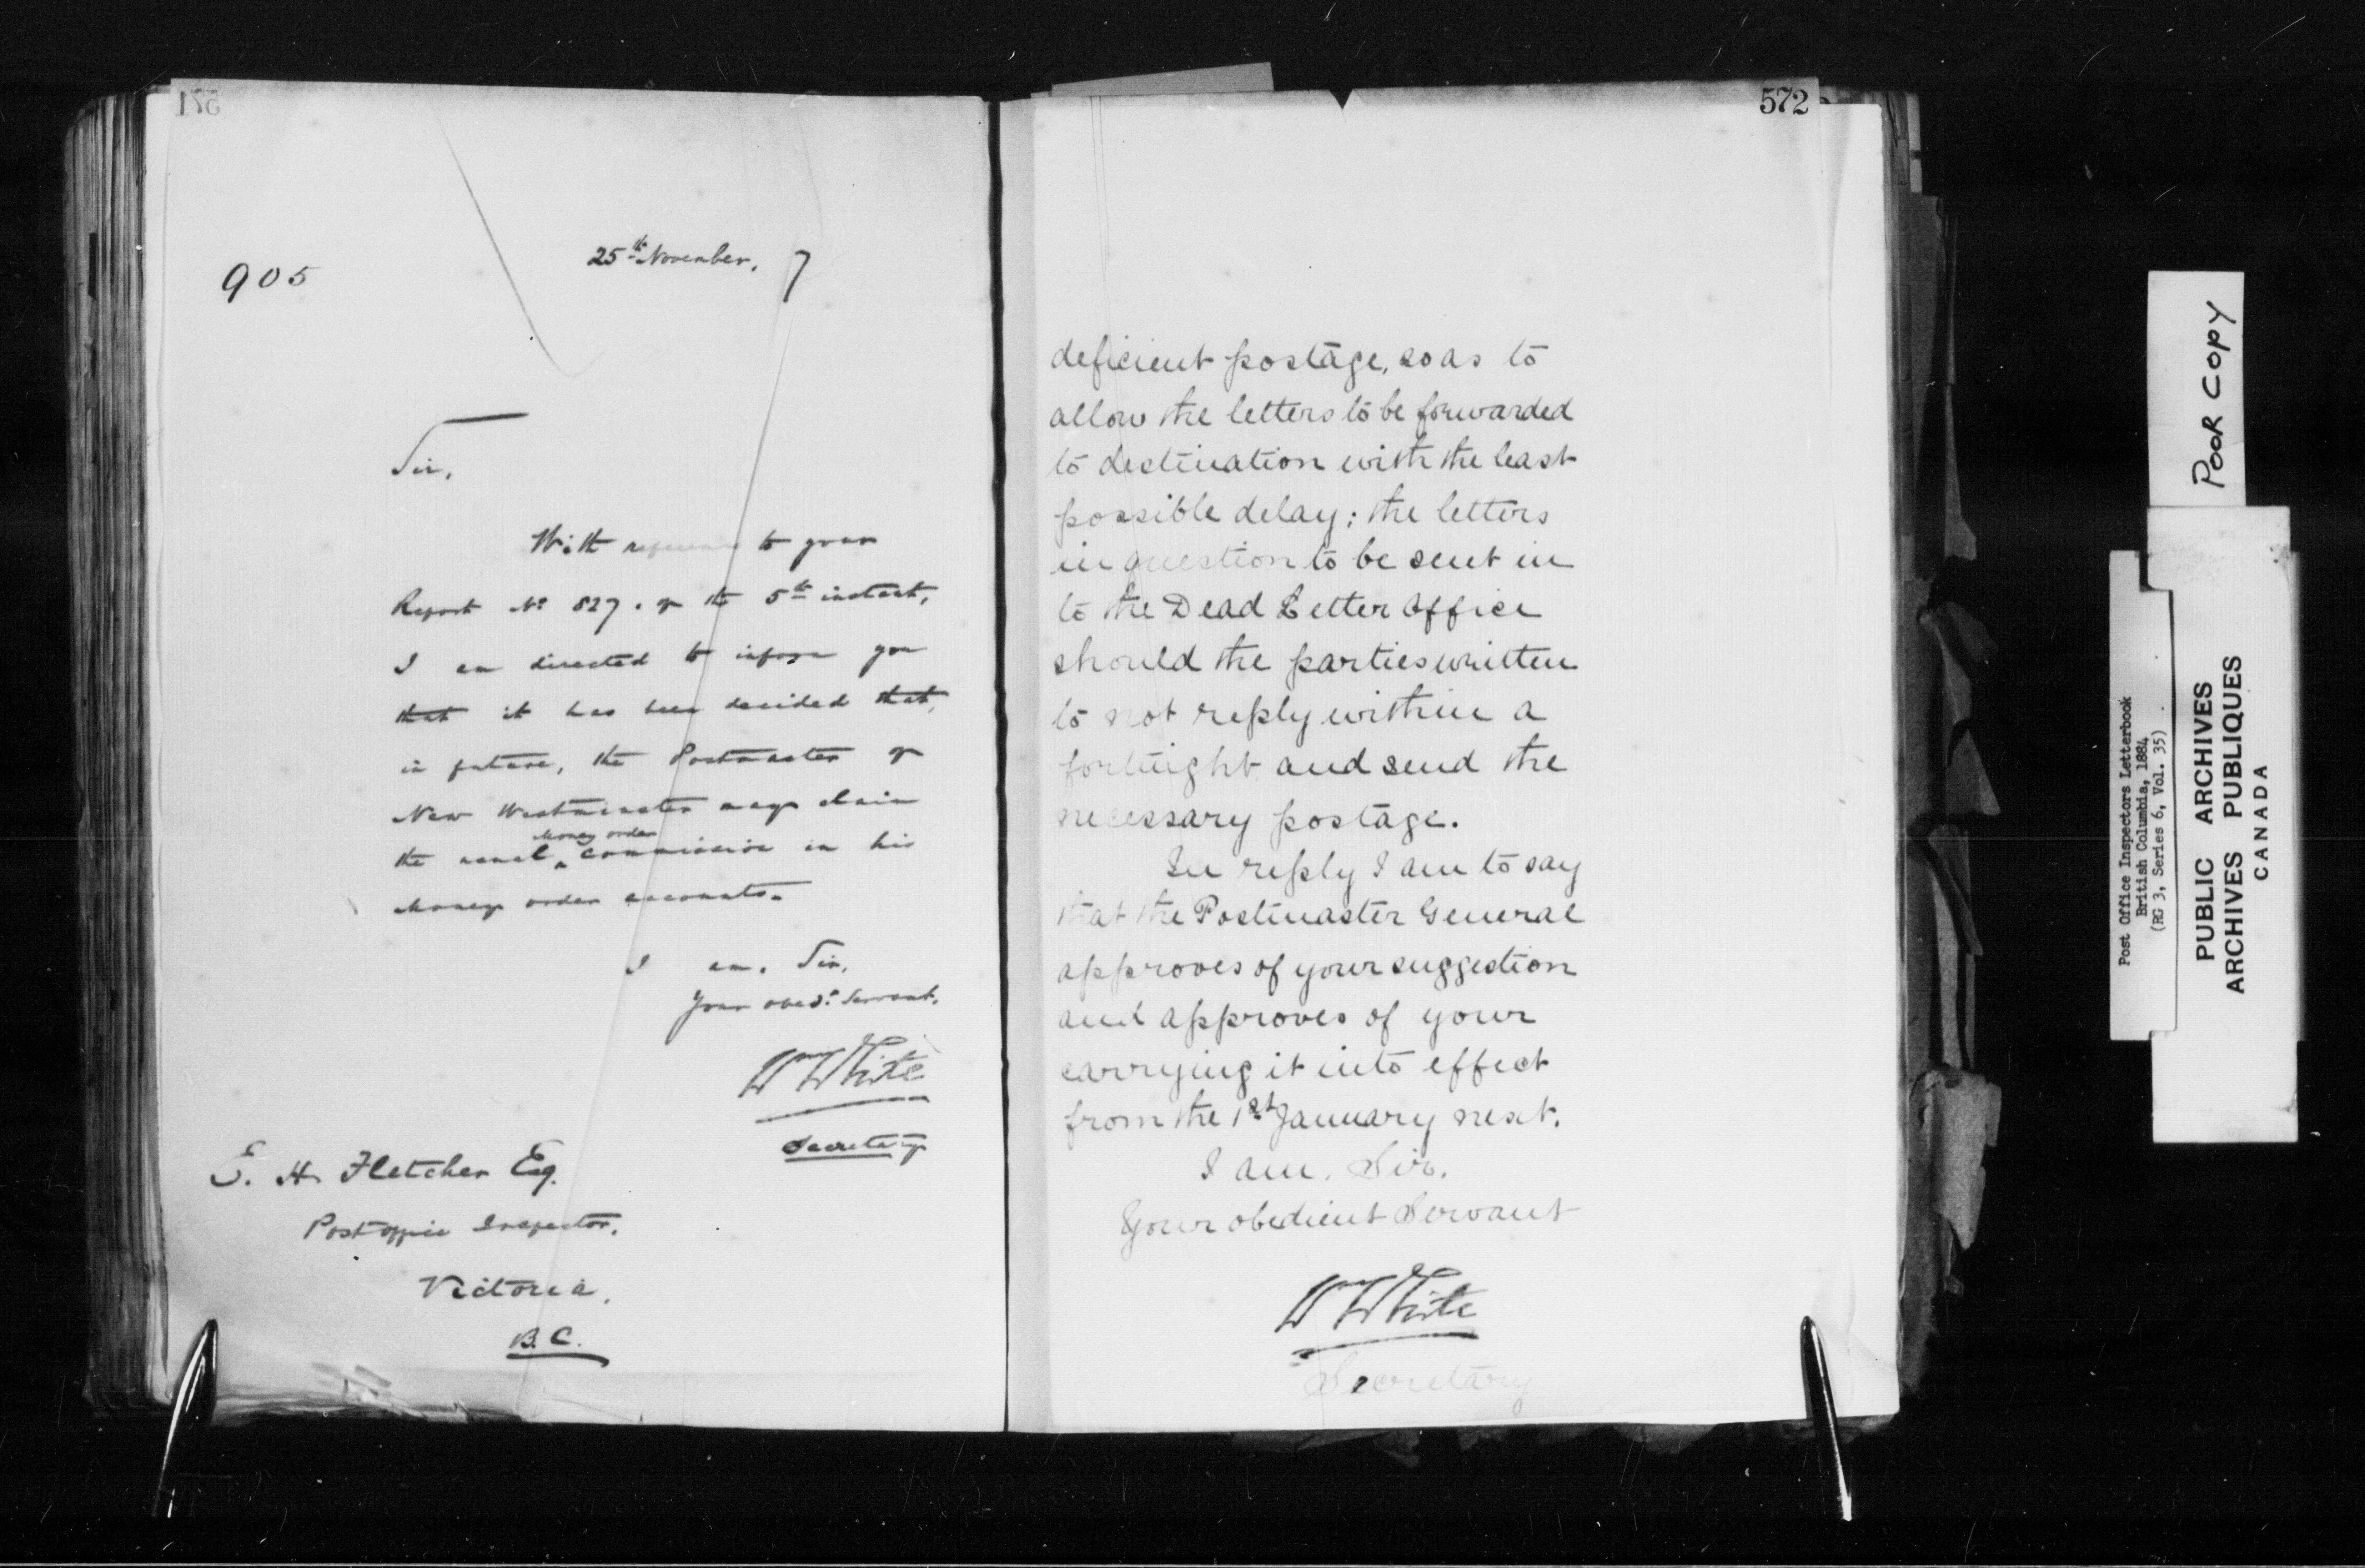 571
905
25th November, 7
Sir,
With reference to your
Report No 827. of the 5th instant,
I am directed to inform you
that it has been decided that,
in future, the Postmaster of
New Westminster may claim
money order
the usual ^ commission in his
money order accounts.
I am, Sir,
Your obedt Servant,
Wm White
Secretary
E. H. Fletcher Esq.
Post office Inspector,
Victoria,
B.C.
572
deficient postage, so as to
allow the letters to be forwarded
to destination with the least
possible delay; the letters
in question to be sent in
to the Dead Letter Office
should the parties written
to not reply within a
fortnight and send the
necessary postage.
In reply I am to say
that the Postmaster General
approves of your suggestion
and approves of your
carrying it into effect
from the 1st January next.
I am, Sir,
Your obedient Servant
Wm White
Secretary
POOR COPY
Post Office Inspectors Letterbook
British Columbia, 1884
(RG 3, Series 6, Vol. 35)
PUBLIC ARCHIVES
ARCHIVES PUBLIQUES
CANADA